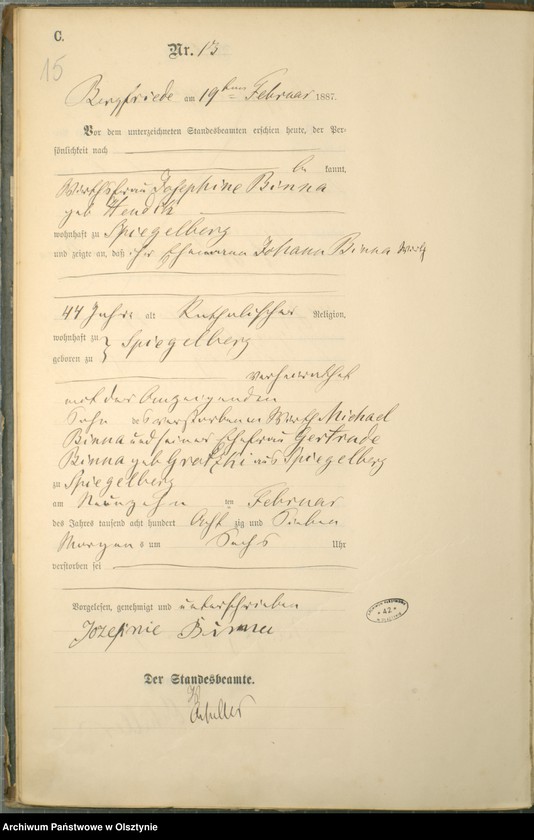 C.
Nr. 13
15
Bergfriede am 19ten Februar 1887.
Vor dem unterzeichneten Standesbeamten erschien heute, der Per-
sönlichkeit nach
be kannt,
Wirthsfrau Josephine Binna
geb Hendik
wohnhaft zu Spiegelberg
und zeigte an, daß ihr Ehemann Johann Binna Wirth
44 Jahre alt Katholischer Religion,
wohnhaft zu } Spiegelberg
geboren zu
verheirathet
mit der Anzeigenden
Sohn des verstorbenen Wirth Michael
Binna und seiner Ehefrau Gertrude
Binna geb aus Spiegelberg
zu Spiegelberg
am Neunzehn ten Februar
des Jahres tausend acht hundert Acht zig und Sieben
Morgens um Sechs Uhr
verstorben sei
Vorgelesen, genehmigt und unterschrieben
Jozefinie Binna
Der Standesbeamte.
42
Archiwum Państwowe w Olsztynie